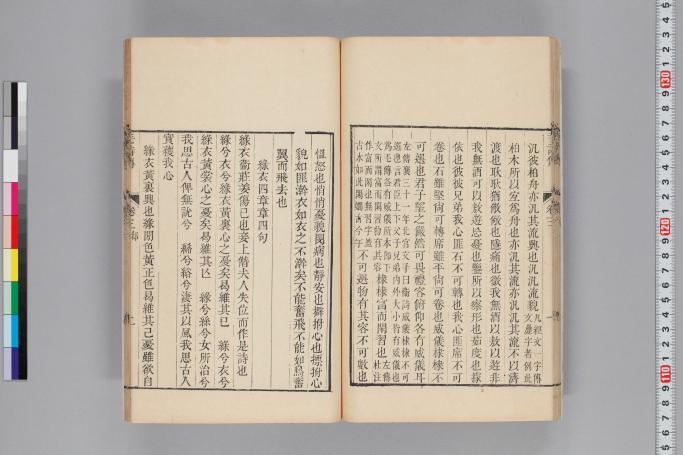 汎彼柏舟亦汎其流興也汎汎流貌
柏木所以宜爲舟也亦汎汎其流不以濟
渡也耿耿猶儆儆也隱痛也微我無酒以敖以遊非
我無酒可以敖遊忘憂也鑒所以察形也茹度也據
依也彼彼兄弟我心匪石不可轉也我心匪席不可
卷也石雖堅尙可轉席雖平尙可卷也威儀棣棣不
可選也君子望之儼然可畏禮容俯仰各有威儀耳
左傳襄三十一年北宮文子曰衞詩威儀棣棣不可
選也言君臣上下父子兄弟內外大小皆有威儀也
棣棣富而閑習也
不可選物有其容不可數也
慍怒也悄悄憂貌閔病也靜安也擗拊心也摽拊心
貌如匪澣衣如衣之不澣矣不能奮飛不能如鳥奮
翼而飛去也
綠衣四章章四句
綠衣衞莊姜傷己也妾上僭夫人失位而作是詩也
綠兮衣兮綠衣黃裏心之憂矣曷維其已　綠兮衣兮
綠衣黃裳心之憂矣曷維其亡　綠兮絲兮女所治兮
我思古人俾無訧兮　絺兮綌兮淒其以風我思古人
實獲我心
綠衣黃裏興也綠閒色黃正色曷維其已憂雖欲自